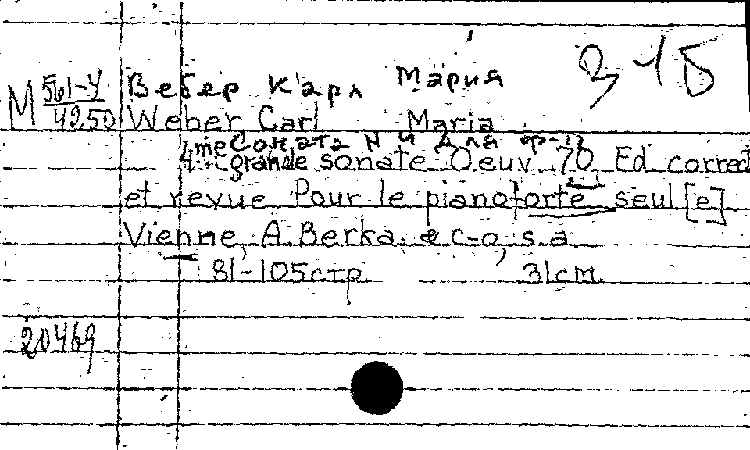 3 1 Б
М 561-4 Вебер Карл Мария
4250 Weber Carl Maria
Соната N 4 для
4me grande sonate. Oeuv. 70. Ed. correct
et revue Pour le pianoforte seul[e]
Vienne, A. Berka. & c-o, s.a.
81-105стр. 31см.
20469